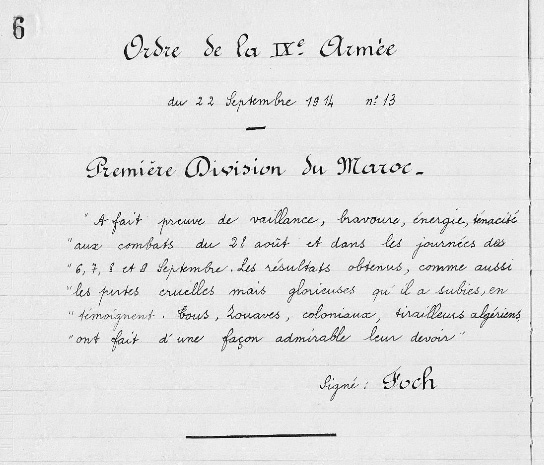 6
Ordre de la IXe Armée
du 22 Septembre 1914 n° 13
Première Division du Maroc_
" A fait preuve de vaillance, bravoure, énergie, ténacité
" aux combats du 28 août et dans les journées des
" 6, 7, 8 et 9 Septembre. Les résultats obtenus, comme aussi
" les pertes cruelles mais glorieuses qu'il a subies, en
" témoignent. Tous, Zouaves, coloniaux, tirailleurs algériens
" ont fait d'une façon admirable leur devoir "
Signé : Foch